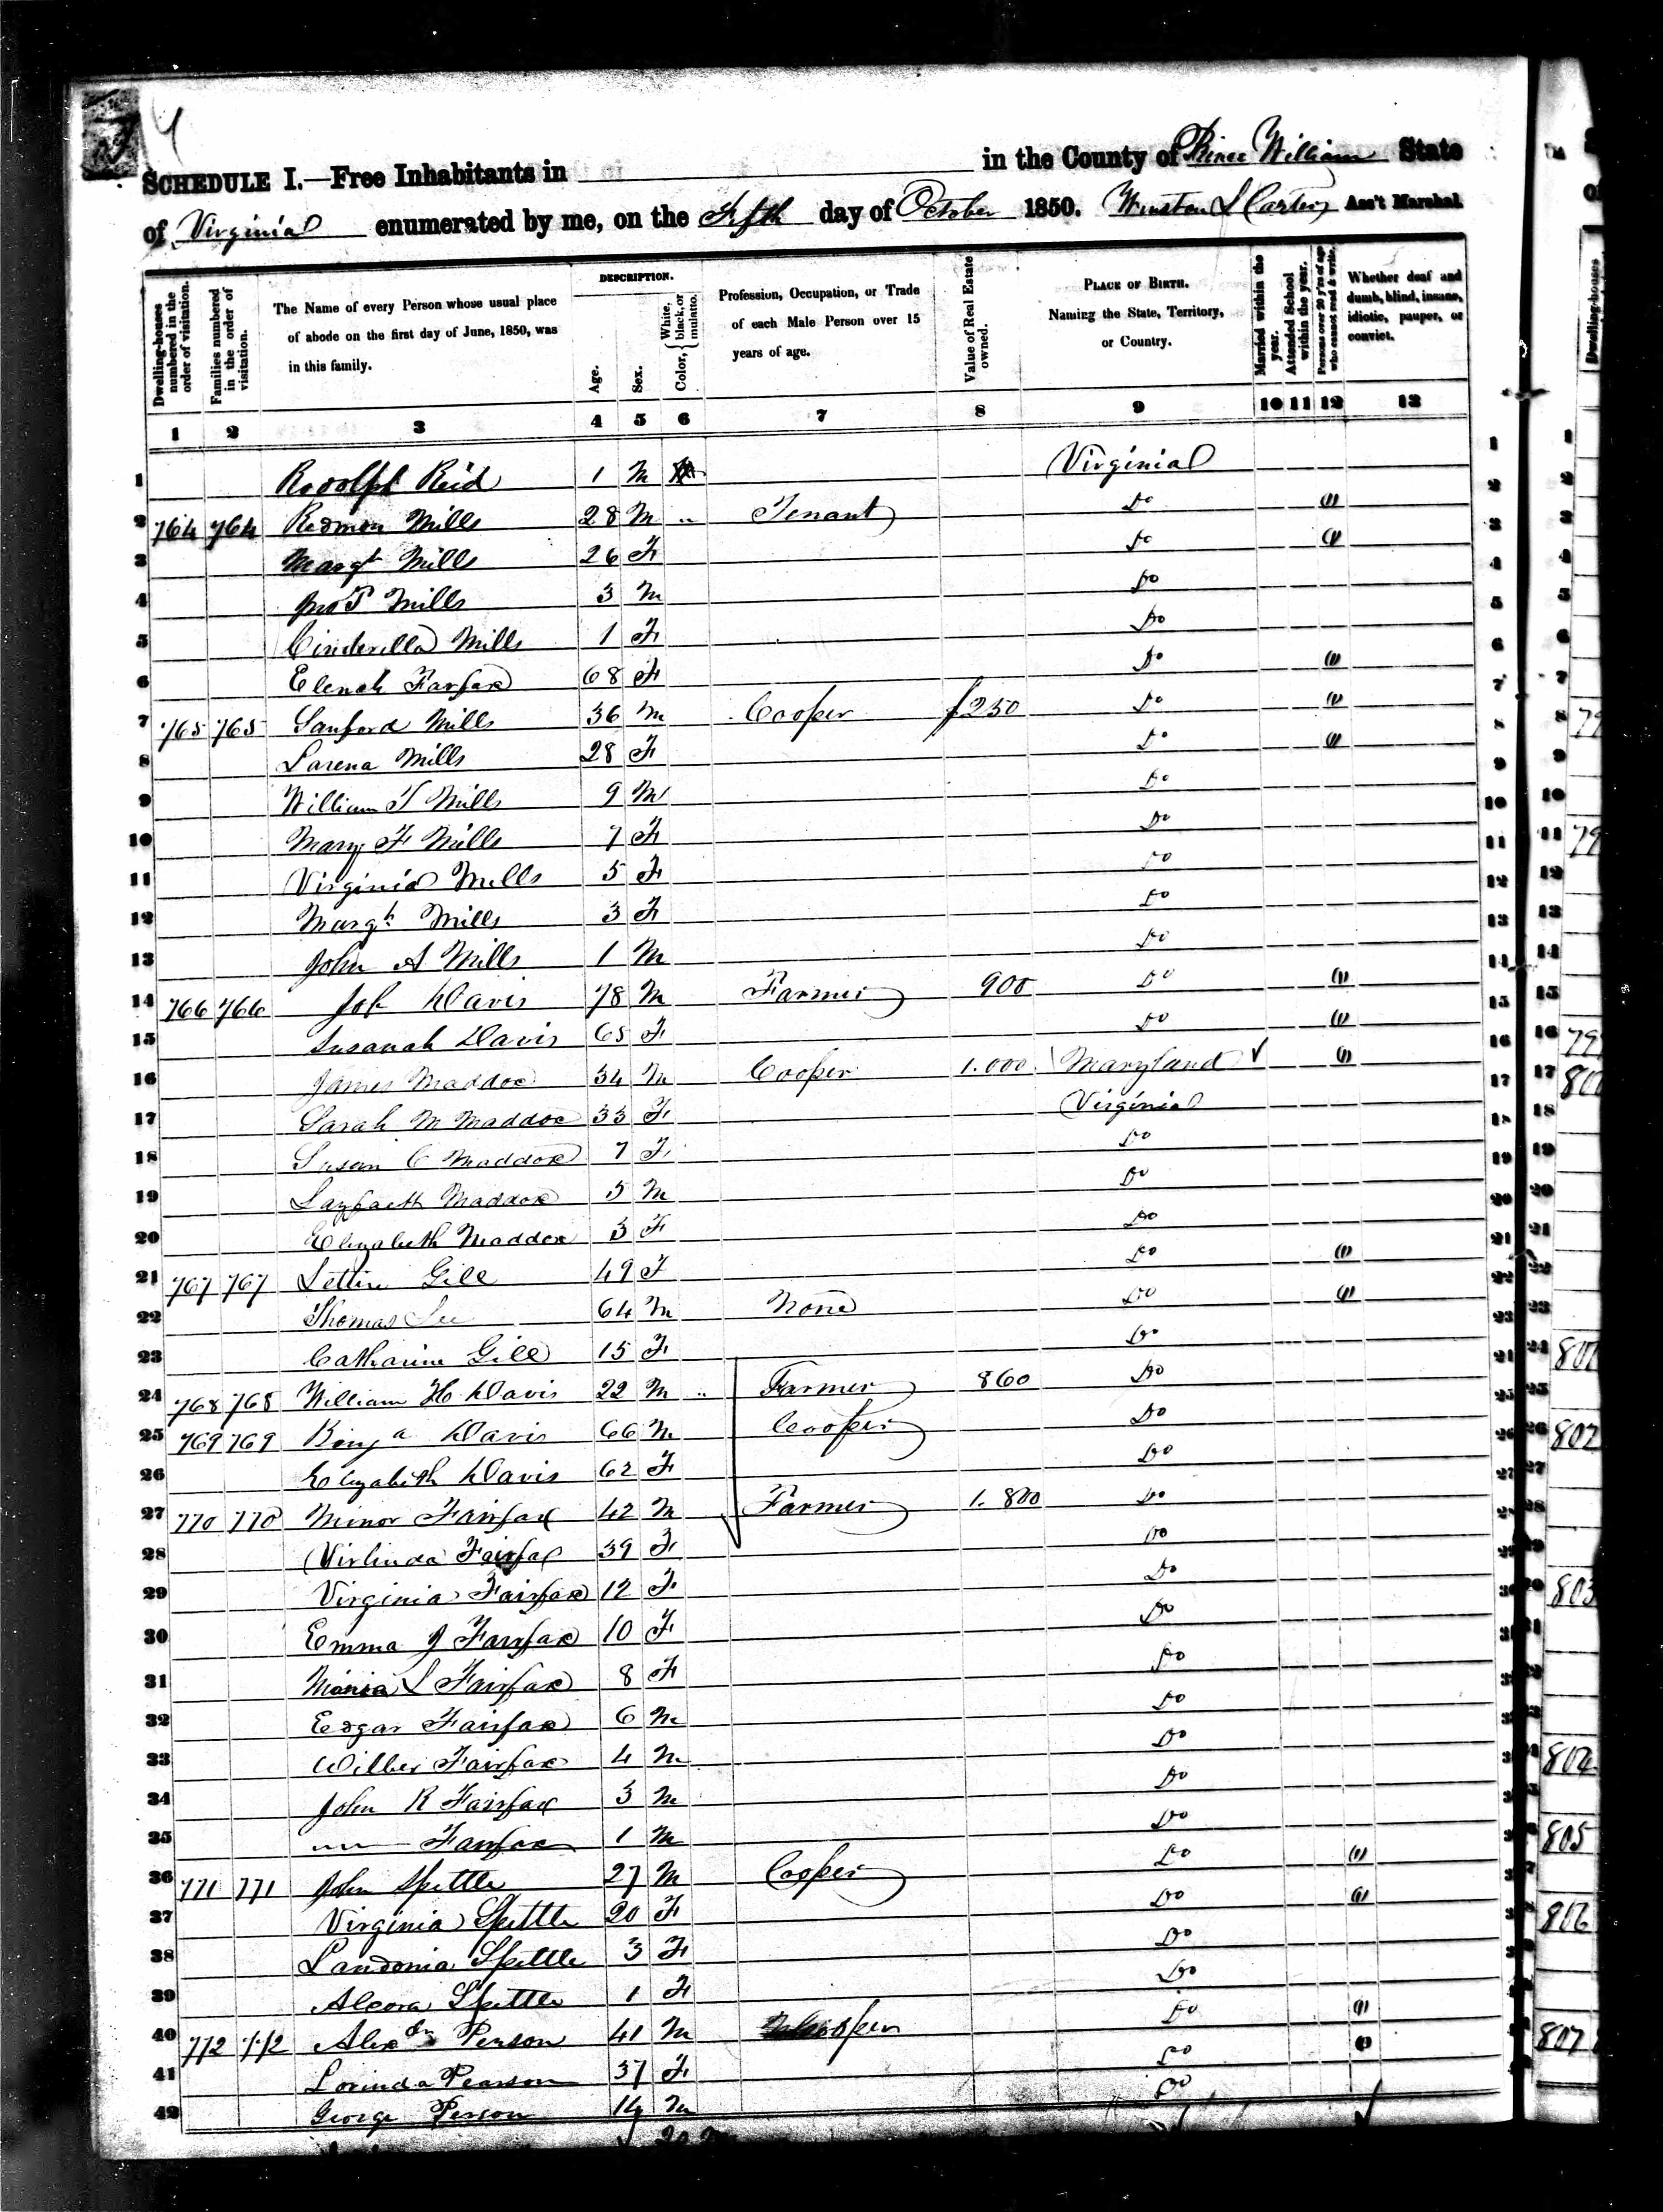 4
SCHEDULE I.—Free Inhabitants in in the County of Prince William State
of Virginia enumerated by me, on the Fifth day of October 1850. Winston S Carter Ass't Marshal.
Dwelling-houses numbered in the order of visitation.
Families numbered in the order of visitation.
The Name of every Person whose usual place of abode on the first day of June, 1850, was in this family.
DESCRIPTION.
Age.
Sex.
Color, { White, black, or mulatto.
Profession, Occupation, or Trade of each Male Person over 15 years of age.
Value of Real Estate owned.
PLACE OF BIRTH. Naming the State, Territory, or Country.
Married within the year.
Attended School within the year.
Persons over 20 y'rs of age who cannot read & write.
Whether deaf and dumb, blind, insane, idiotic, pauper, or convict.
1 2 3 4 5 6 7 8 9 10 11 12 13
1 Rodolph Reid 1 M Virginia 1
2 764 764 Redmon Mills 28 M " Tenant Do (1) 2
3 Margt Mills 26 F Do (1) 3
4 Jno T Mills 3 M Do 4
5 Cinderella Mills 1 F Do 5
6 Elenah Fairfax 68 F Do (1) 6
7 765 765 Sanford Mills 36 M Cooper $250 Do (1) 7
8 Larena Mills 28 F Do (1) 8
9 William T Mills 9 M Do 9
10 Mary F Mills 7 F Do 10
11 Virginia Mills 5 F Do 11
12 Margt Mills 3 F Do 12
13 John A Mills 1 M Do 13
14 766 766 Job Davis 78 M Farmer 900 Do (1) 14
15 Susanah Davis 65 F Do (1) 15
16 James Maddox 34 M Cooper 1.000 Maryland ✓ (1) 16
17 Sarah M Maddox 33 F Virginia 17
18 Susan C Maddox 7 F Do 18
19 Layfaett Maddox 5 M Do 19
20 Elizabeth Maddox 3 F Do 20
21 767 767 Lettie Gill 49 F Do (1) 21
22 Thomas Lee 64 M None Do (1) 22
23 Catharine Gill 15 F Do 23
24 768 768 William H Davis 22 M " Farmer 860 Do
25 769 769 Benja Davis 66 M Cooper Do 25
26 Elizabeth Davis 62 F Do 26
27 770 770 Minor Fairfax 42 M Farmer 1.800 Do 27
28 Virlinda Fairfax 39 F Do
29 Virginia Fairfax 12 F Do
30 Emma J Fairfax 10 F Do
31 Maria L Fairfax 8 F Do
32 Edgar Fairfax 6 M Do
33 Wilber Fairfax 4 M Do
34 John R Fairfax 3 M Do
35 Fairfax 1 M Do
36 771 771 John Spittle 27 M Cooper Do (1)
37 Virginia Spittle 20 F Do (1)
38 Landonia Spittle 3 F Do
39 Alcora Spittle 1 F Do
40 772 772 Alexdr Person 41 M Cooper Do (1)
41 Lorinda Pearson 37 F Do (1)
42 George Person 14 M Do
Dwelling-houses
1
2
3
4
5
6
7
8 79
9
10
11 79
12
13
14
15
16 79
17 80
18
19
20
21
22
23
24 801
25
26 802
27
28
803
804
805
806
807